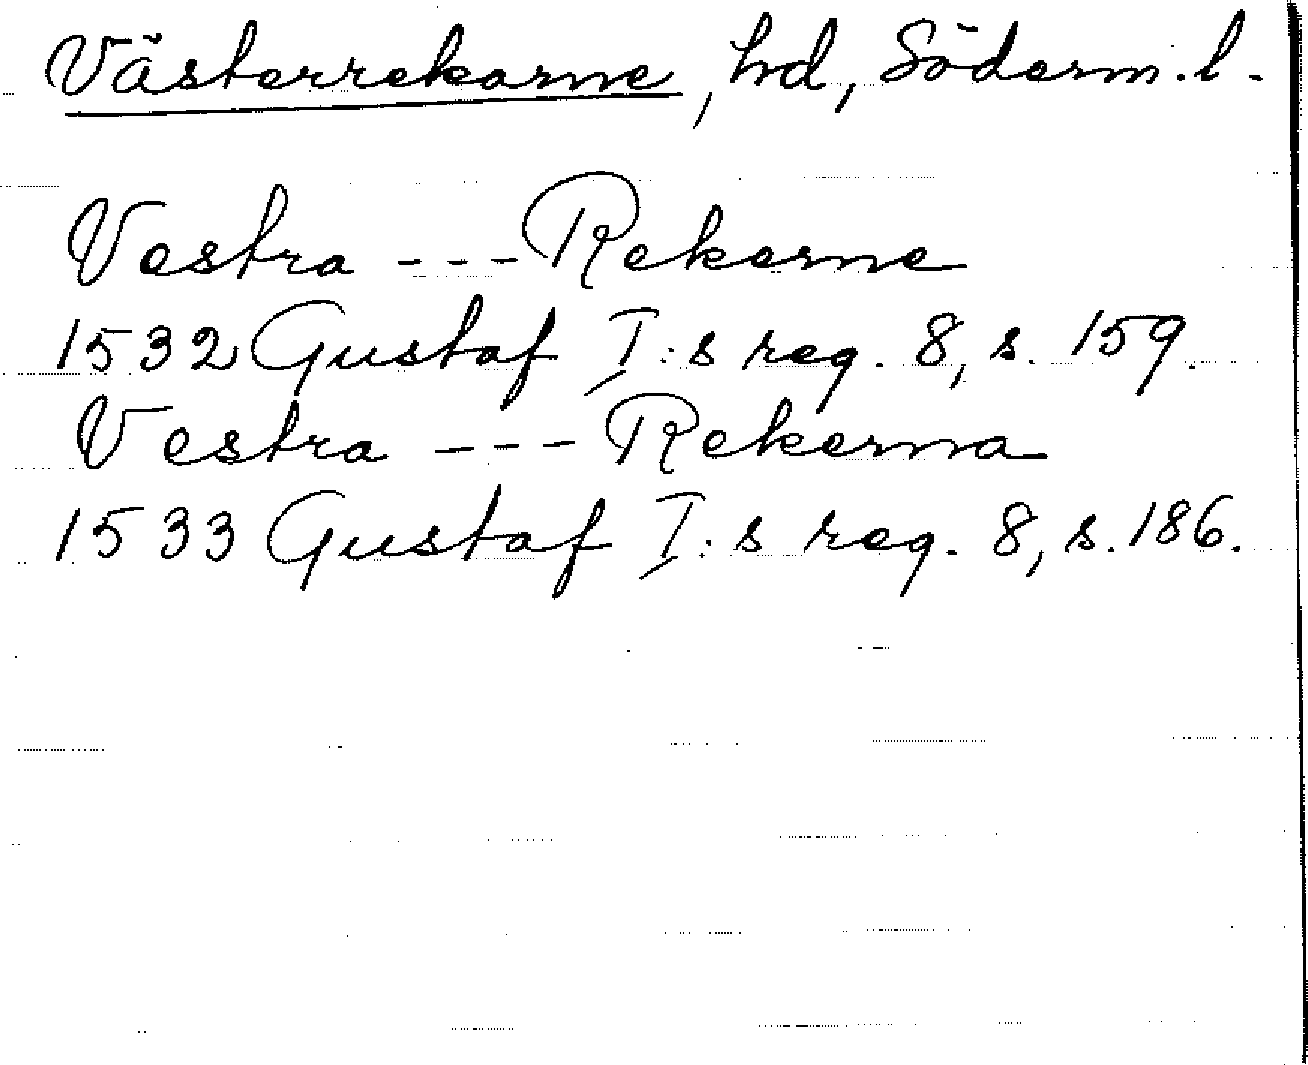 Västerrekarne, hd, Söderm.l.
Vestra --- Rekerne
1532 Gustaf I:s reg. 8, s. 159.
Vestra --- Rekerna
1533 Gustaf I:s reg. 8, s. 186.